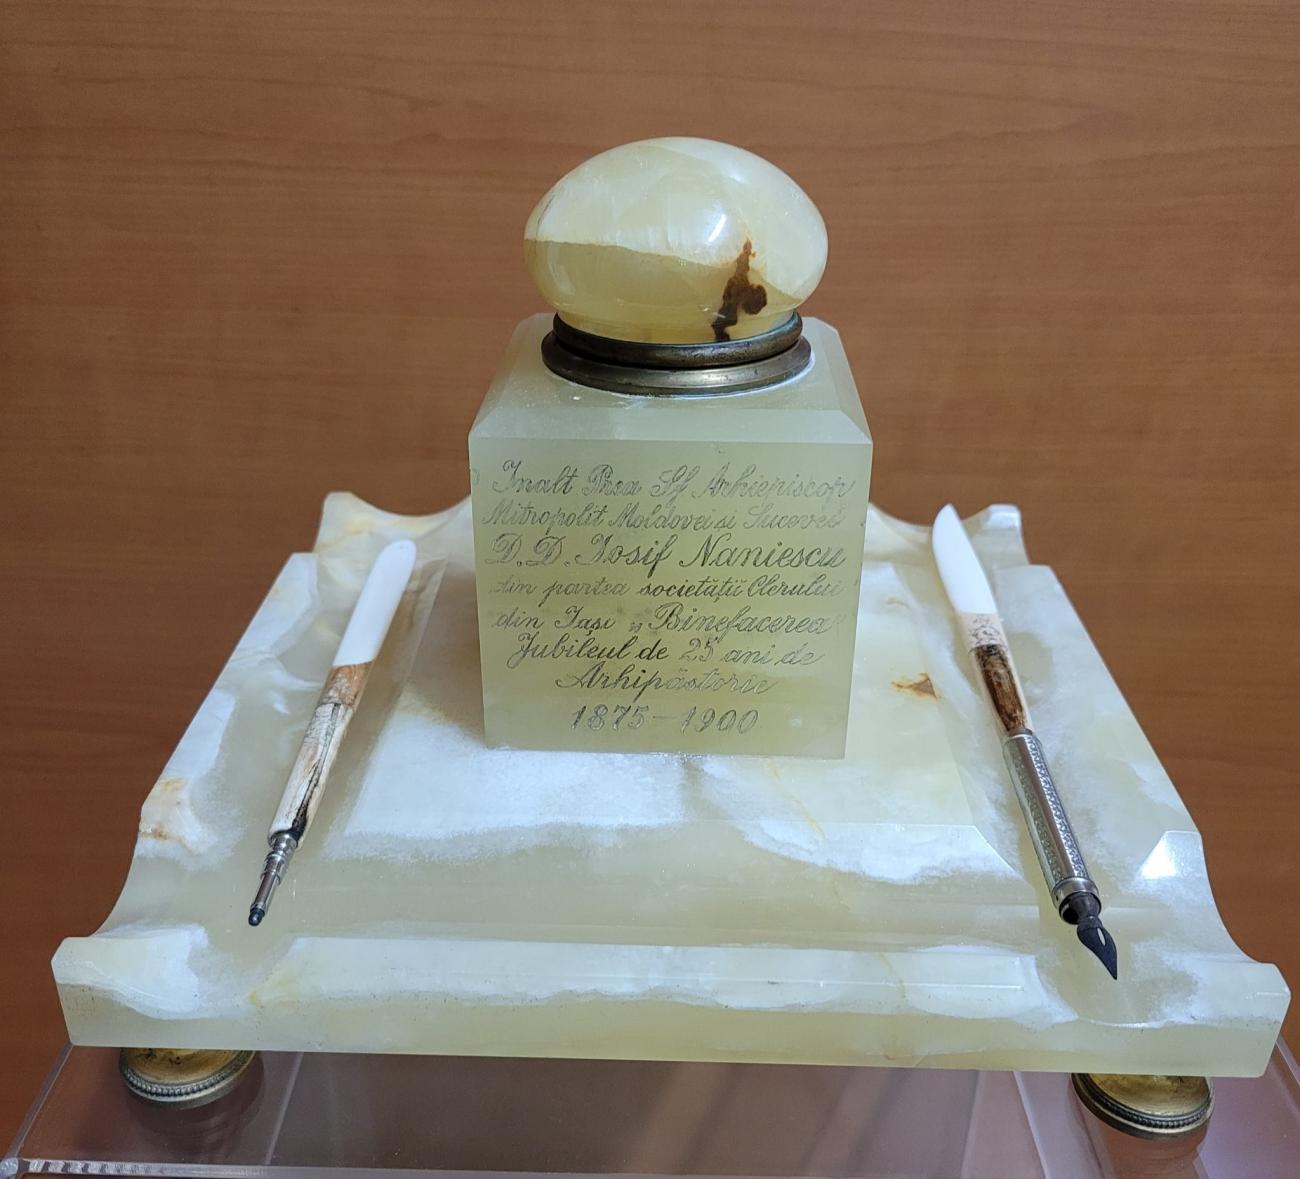 Inalt Prea Sf Arhiepiscop
Mitropolit Moldovei si Sucevei
D. D. Iosif Naniescu
din partea societății Clerului
din Iași „Binefacerea"
Jubileul de 25 ani de
Arhipăstorie
1875-1900